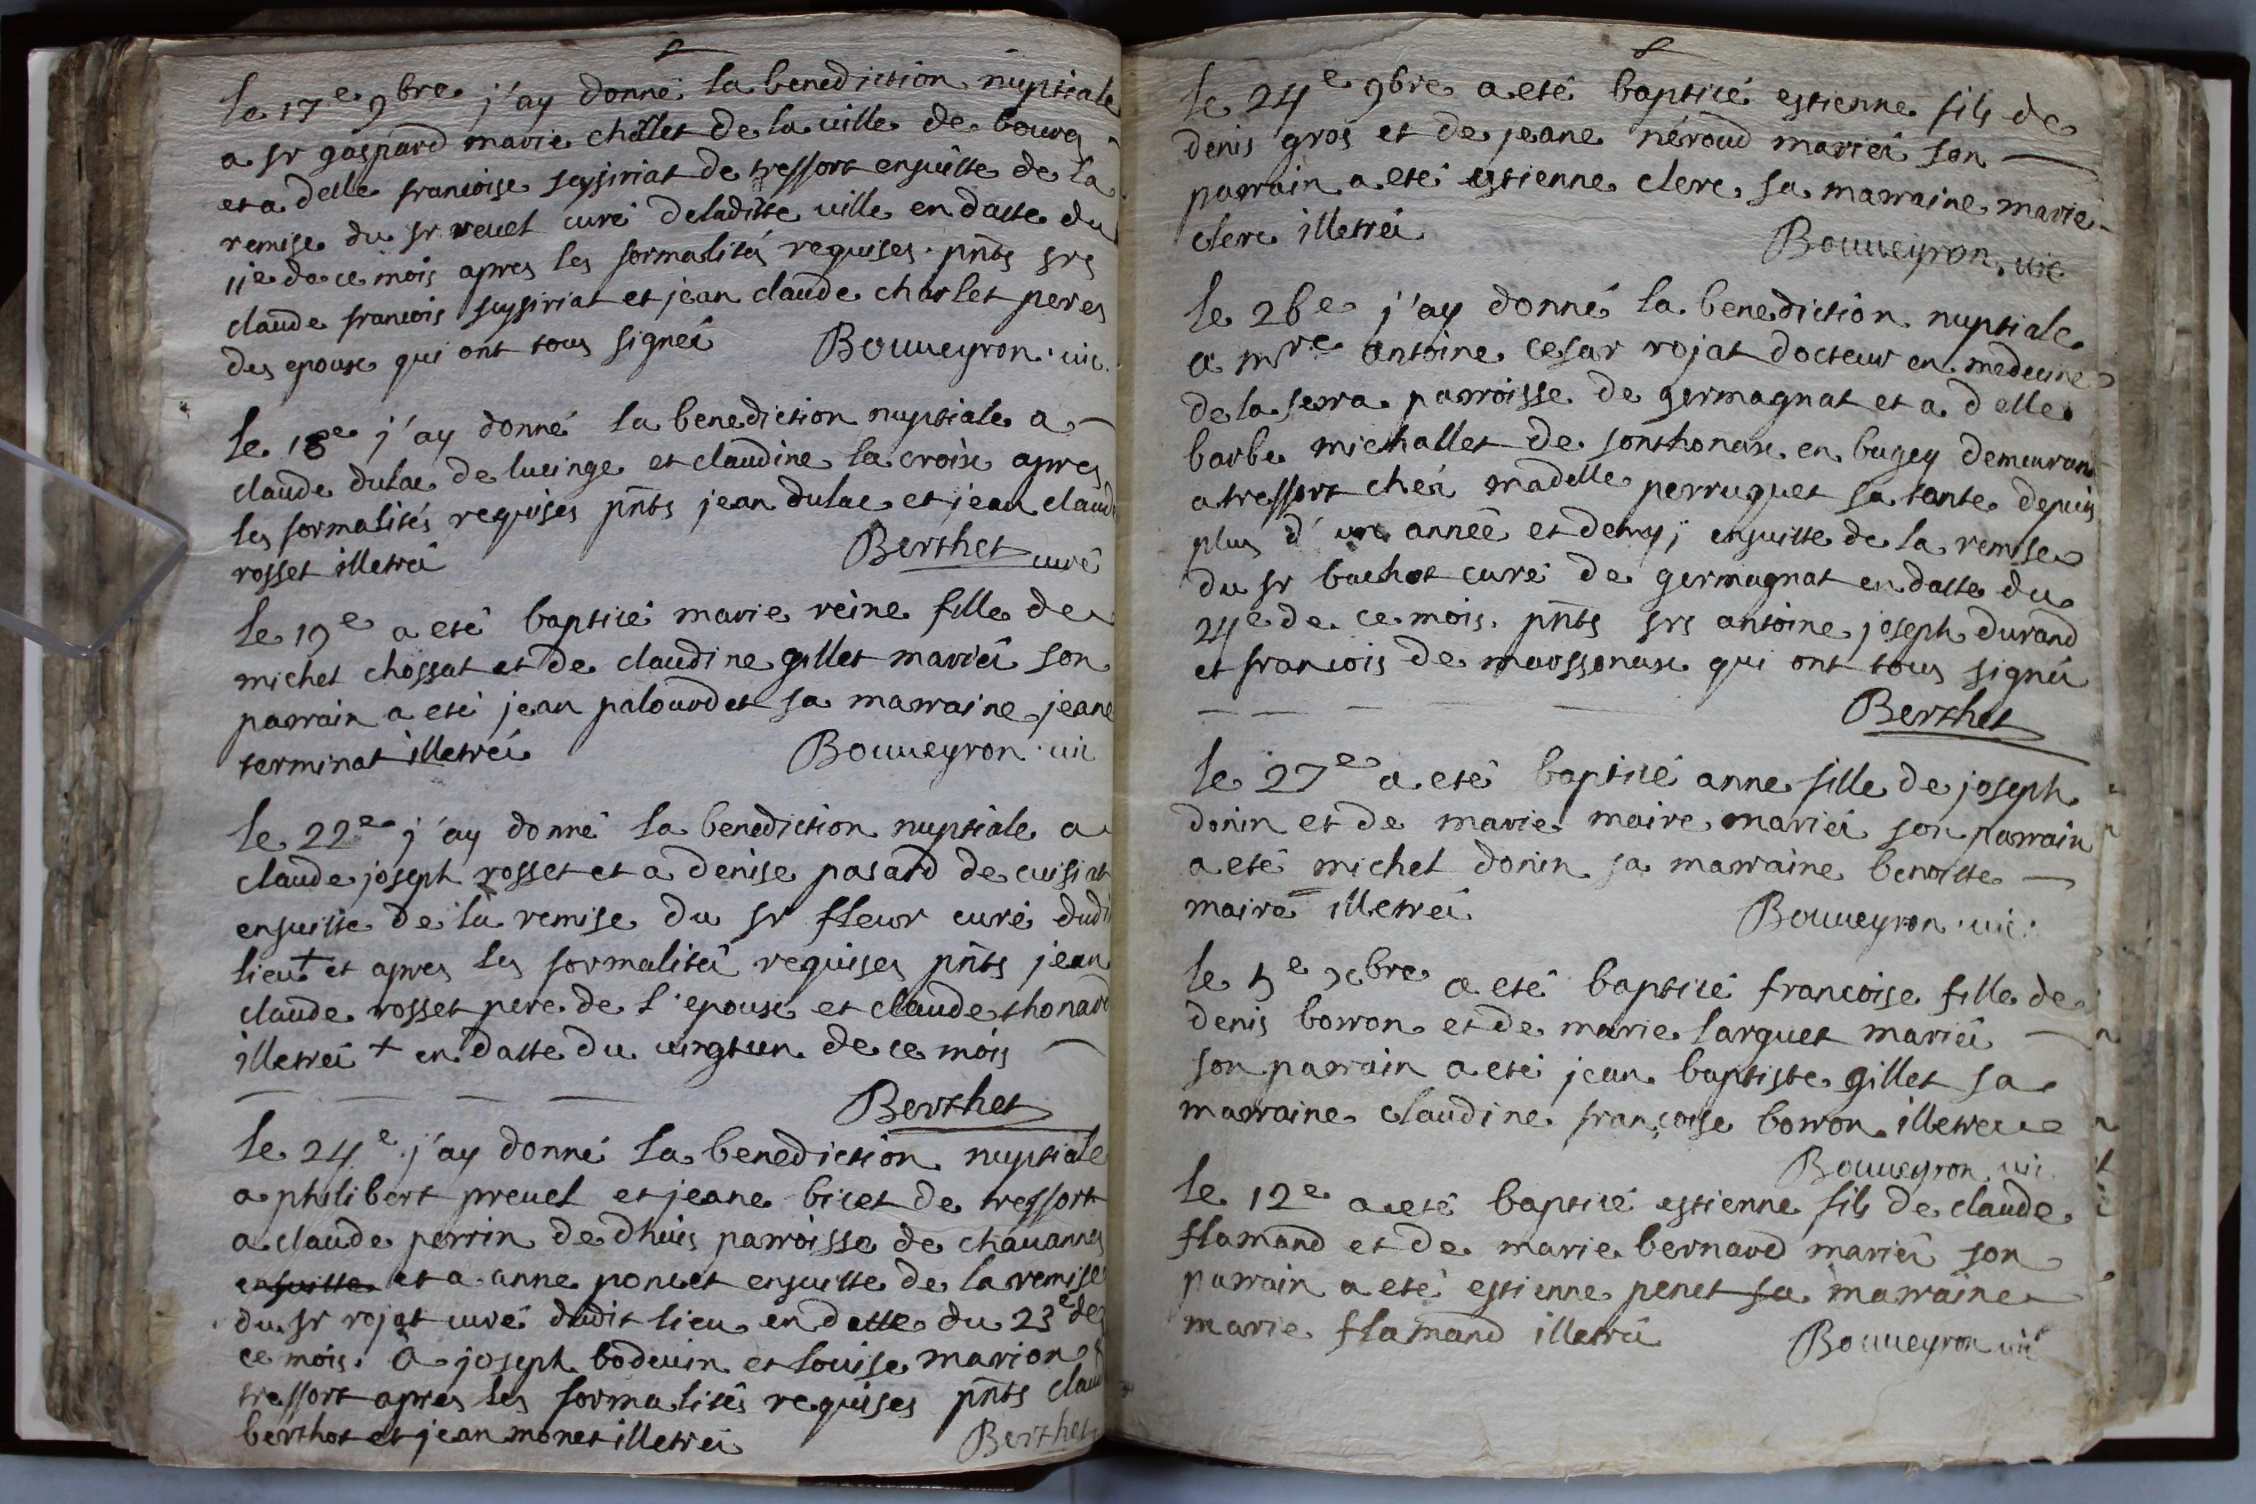 le 17e 9bre j'ay donné la benediction nuptiale
a sr gaspard marie chållet de la ville de bourg
et a delle francoise seysiriat de tressort ensuitte de la
remise du sr revel curé deladitte ville en datte du
11e de ce mois apres les formalités requises. pñts srs
claude francois seysiriat et jean claude charlet peres
des epoux qui ont tous signés Bouveyron. vic.
le 18e j'ay donné la benediction nuptiale a
claude dulac de lucinge et claudine la croix apres
les formalités requises pñts jean dulac et jean claude
rosset illetrés Berthet curé
le 19e a eté baptisé marie reine fille de
michel chossat et de claudine gillet mariés son
parrain a eté jean palourdet sa marraine jeane
terminat illetrés Bouveyron. vic
le 22e j'ay donné la benediction nuptiale a
claude joseph rosset et a denise pasard de cuisiat
ensuitte de la remise du sr fleur curé dudi
lieu + et apres les formalités requises pñts jean
claude rosset pere de l'epoux et claude thonard
illetrés + en datte du vingtun de ce mois
Berthet
le 24e j'ay donné la benediction nuptiale
a philibert prevel et jeane bicet de tressort
a claude perrin de dhuis parroisse de chavannes
ensuitte et a anne poncet ensuitte de la remise
du sr rojat curé dudit lieu en datte du 23e de
ce mois. a joseph boduin et louise marion
tressort apres les formalités requises pñts claud
berthot et jean monet illetrés Berthet
le 24e 9bre a eté baptisé estienne fils de
denis gros et de jeane néroud mariés son
parrain a eté estienne clerc, sa marraine marie
clerc illetrés Bouveyron. vic
le 26e j'ay donné la benediction nuptiale
a mre antoine cesar rojat docteur en medecine
de la serra parroisse de germagnat et a delle
barbe michallet de sonthonax en bugey demeurant
a tressort chés madelle perruquet sa tante depuis
plus d'une année et demy; ensuitte de la remise
du sr bachot curé de germagnat en datte du
24e de ce mois. pñts srs antoine joseph durand
et francois de marssonax qui ont tous signés
Berthet
le 27e a eté baptisé anne fille de joseph
donin et de marie maire mariés son parrain
a eté michel donin sa marraine benoitte
maire illetrés Bouveyron. vic.
le 5e xbre a eté baptisé francoise fille de
denis borron et de marie larguet mariés
son parrain a eté jean baptiste gillet sa
marraine claudine françoise borron illetrés
Bouveyron vic.
le 12e a eté baptisé estienne fils de claude
flamand et de marie bernard mariés son
parrain a eté estienne penet sa marraine
marie flamand illetrés Bouveyron vic